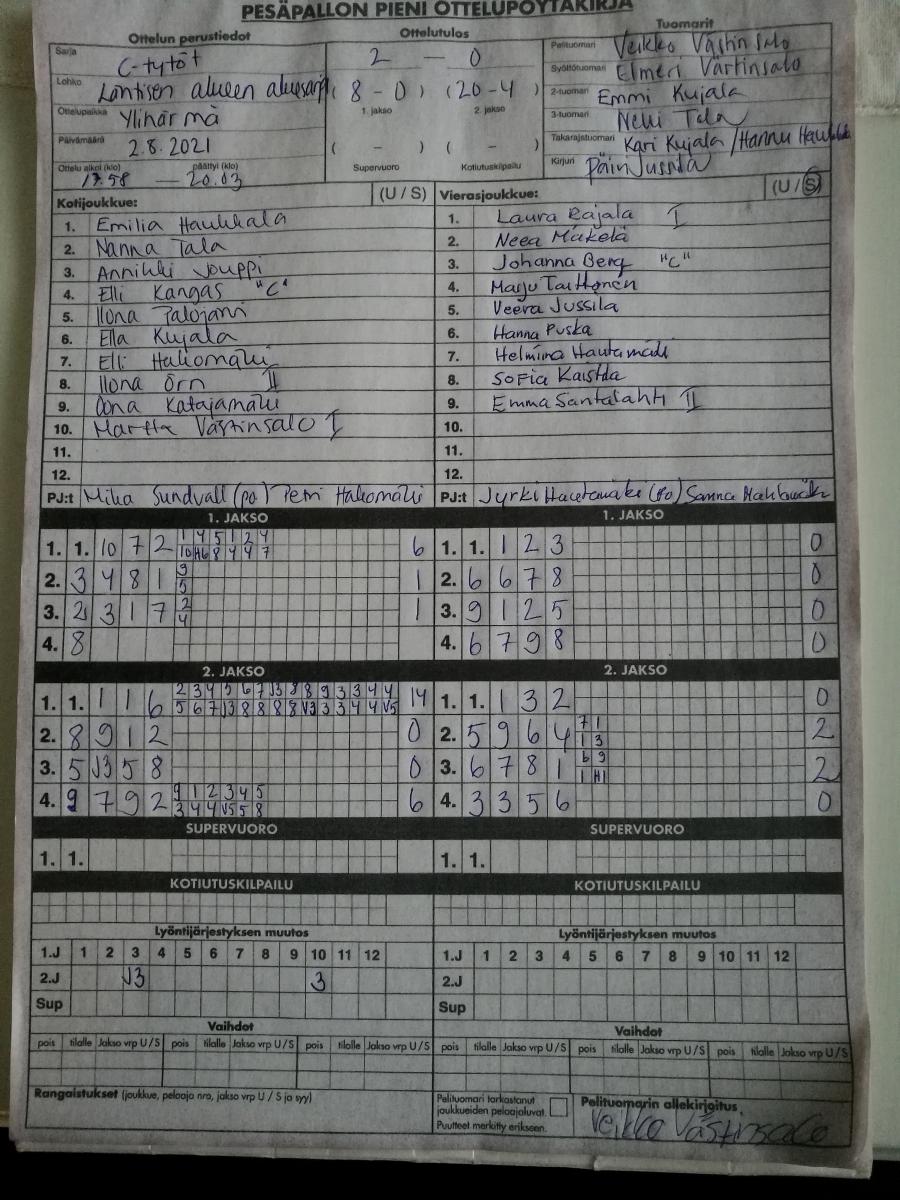 PESÄPALLON PIENI OTTELUPÖYTÄKIRJA
Ottelun perustiedot
Ottelutulos
Tuomarit
Sarja
C-tytöt
2 — 0
Pelituomari Veikko Västinsalo
Syöttötuomari Elmeri Västinsalo
Lohko Läntisen alueen aluesarja
( 8 - 0 ) (20 - 4)
1. jakso 2. jakso
2-tuomari Emmi Kujala
Ottelupaikka Ylihärmä
3-tuomari Nelli Tala
Päivämäärä 2.8.2021
( - ) ( - )
Takarajatuomari Kari Kujala / Hannu
Ottelu alkoi (klo) päättyi (klo)
17.58 — 20.03
Supervuoro Kotiutuskilpailu
Kirjuri Päivi Jussila
Kotijoukkue: (U / S)
Vierasjoukkue: (U / S)
1. Emilia Haukkala
2. Nanna Tala
3. Annikki Jouppi
4. Elli Kangas "C"
5. Ilona Palojärvi
6. Ella Kujala
7. Elli Hakomäki
8. Ilona Örn II
9. Oona Katajamäki
10. Martta Västinsalo I
11.
12.
PJ:t Mika Sundvall (po) Petri Hakomäki
1. Laura Rajala I
2. Neea Mäkelä
3. Johanna Berg "C"
4. Marju
5. Veera Jussila
6. Hanna Puska
7. Helmina Hautamäki
8. Sofia
9. Emma Santalahti II
10.
11.
12.
PJ:t Jyrki Hautamäki (po) Sanna
1. JAKSO
1. 1. 10 7 2 1 4 5 1 2 4 6
10 H6 8 4 4 7
2. 3 4 8 1 9 1
5
3. 2 3 1 7 2 1
4
4. 8
1. JAKSO
1. 1. 1 2 3 0
2. 6 6 7 8 0
3. 9 1 2 5 0
4. 6 7 9 8 0
2. JAKSO
1. 1. 1 1 6 2 3 4 5 6 7 J3 8 8 9 3 3 4 4 14
5 6 7 J3 8 8 8 8 V3 3 3 4 4 V5
2. 8 9 1 2 0
3. 5 J3 5 8 0
4. 9 7 9 2 9 1 2 3 4 5 6
3 4 4 V5 5 8
2. JAKSO
1. 1. 1 3 2 0
2. 5 9 6 4 7 1 2
1 3
3. 6 7 8 1 6 9 2
1 H1
4. 3 3 5 6 0
SUPERVUORO
1. 1.
SUPERVUORO
1. 1.
KOTIUTUSKILPAILU
KOTIUTUSKILPAILU
Lyöntijärjestyksen muutos
1.J 1 2 3 4 5 6 7 8 9 10 11 12
2.J J3 3
Sup
Lyöntijärjestyksen muutos
1.J 1 2 3 4 5 6 7 8 9 10 11 12
2.J
Sup
Vaihdot
pois tilalle Jakso vrp U / S pois tilalle Jakso vrp U / S pois tilalle Jakso vrp U / S
Vaihdot
pois tilalle Jakso vrp U / S pois tilalle Jakso vrp U / S pois tilalle Jakso vrp U / S
Rangaistukset (joukkue, pelaaja nro, jakso vrp U / S ja syy)
Pelituomari tarkastanut
joukkueiden pelaajaluvat.
Puutteet merkitty erikseen.
Pelituomarin allekirjoitus
Veikko Västinsalo